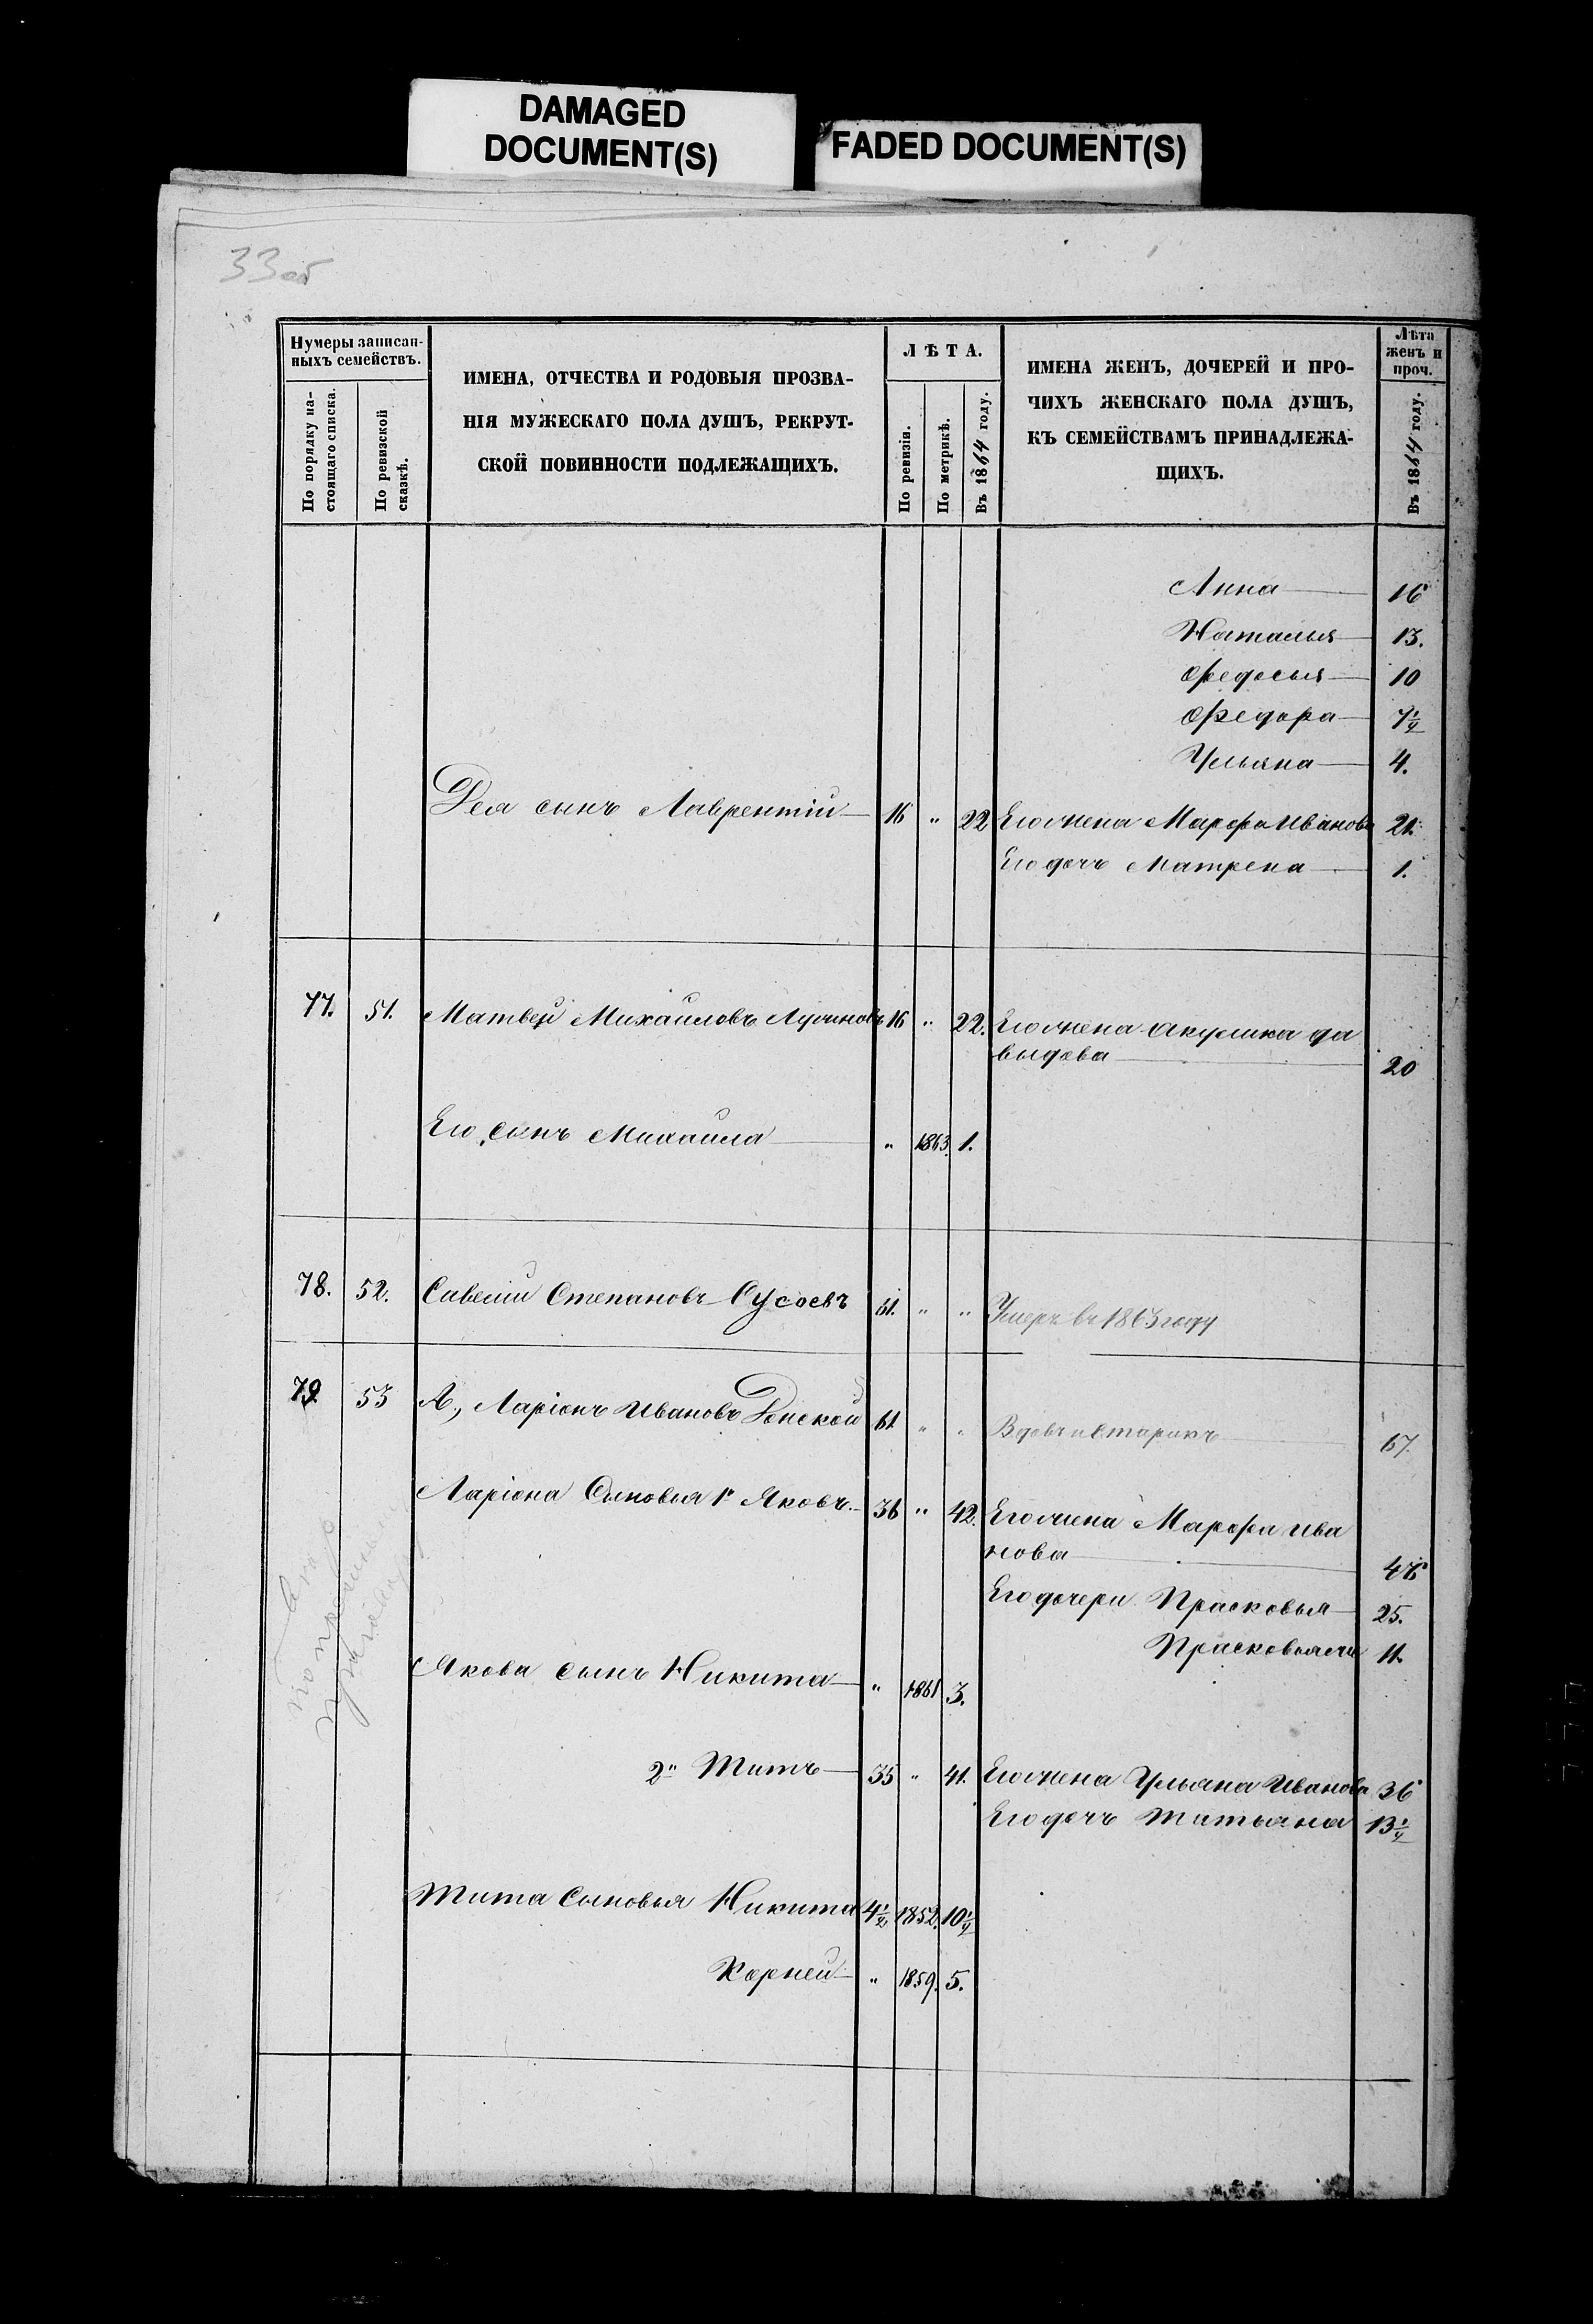 DAMAGED
DOCUMENT(S)
FADED DOCUMENT(S)
33 об
Нумеры записан-
ныхъ семействъ.
По порядку на-
стоящаго списка.
По ревизской
сказкѣ.
ИМЕНА, ОТЧЕСТВА И РОДОВЫЯ ПРОЗВА-
НІЯ МУЖЕСКАГО ПОЛА ДУШЪ, РЕКРУТ-
СКОЙ ПОВИННОСТИ ПОДЛЕЖАЩИХЪ.
ЛѢТА.
По ревизіи.
По метрикѣ.
Въ 1864 году.
ИМЕНА ЖЕНЪ, ДОЧЕРЕЙ И ПРО-
ЧИХЪ ЖЕНСКАГО ПОЛА ДУШЪ,
КЪ СЕМЕЙСТВАМЪ ПРИНАДЛЕЖА-
ЩИХЪ.
Лѣта
женъ и
проч.
Въ 1864 году.
Анна 16
Наталья 13.
Федосья 10
Федора 7 1/4
Ульяна 4.
сынъ Лаврентій 16 " 22 Его жена Марфа Иванова 21.
Его дочь Матрена 1.
77. 51. Матвей Михайловъ 16 " 22. Его жена Акулина Да
выдова 20
Его сынъ Михаила " 1863. 1.
78. 52. Савелій Степановъ Сусоевъ 61. " " Умеръ въ 1863 году
79 53 А, Ларіонъ Ивановъ Донской 61 " " Вдовъ и старикъ 67.
Ларіона Сыновья 1й Яковъ 36 " 42. Его жена Марфа Ива
нова 46
Его дочери Прасковья 25.
Прасковья 11.
Якова сынъ Никита " 1861 3.
2й Титъ 35 " 41. Его жена Ульяна Иванова 36
Его дочь Татьяна 13 1/4
Тита Сыновья Никита 4 1/2 1852. 10 1/4
Корней " 1859. 5.